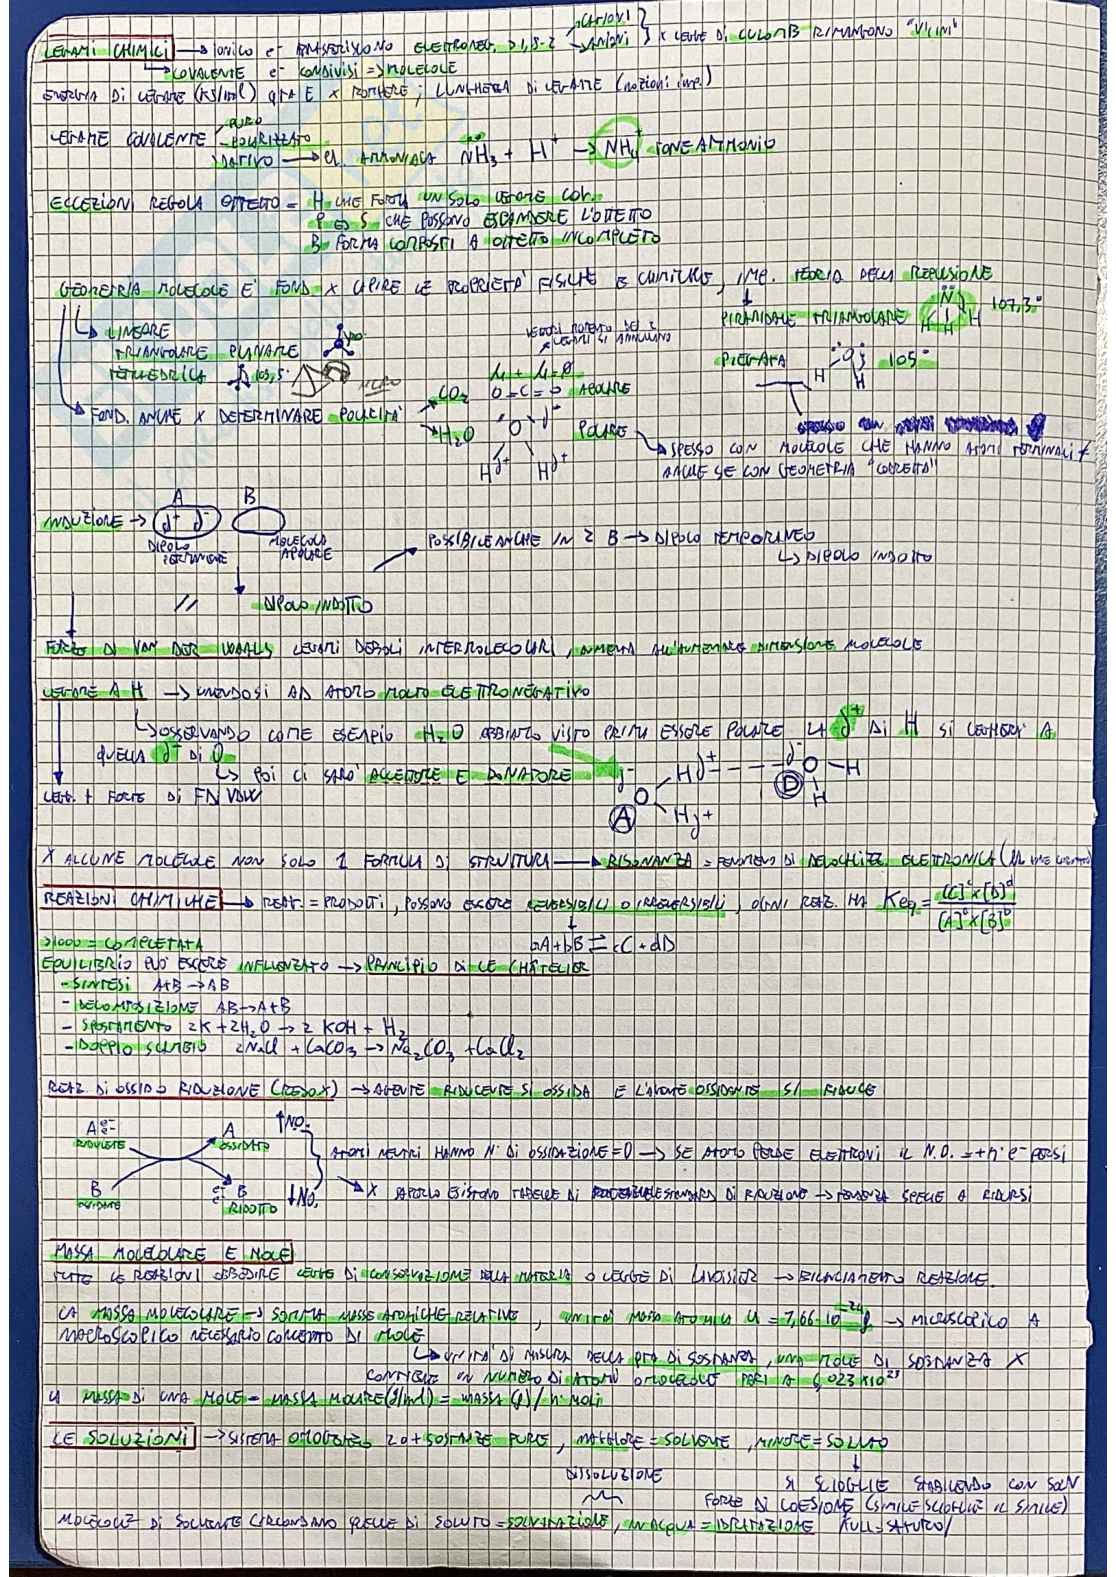 LEGAMI CHIMICI → IONICO e⁻ TRASFERISCONO ELETTRONEG. >1,5-2 CATIONI ANIONI } X LEGGE DI CULOMB RIMANGONO "VICINI"
↳ COVALENTE e⁻ CONDIVISI => MOLECOLE
ENERGIA DI LEGAME (KJ/mol) QTA E X ROMPERE ; LUNGHEZZA DI LEGAME (nozioni imp.)
LEGAME COVALENTE PURO
- POLARIZZATO
DATIVO → es. AMMONIACA NH₃ + H⁺ → NH₄⁺ IONE AMMONIO
ECCEZIONI REGOLA OTTETTO = H CHE FORMA UN SOLO LEGAME COV.
P ED S CHE POSSONO ESPANDERE L'OTTETTO
B FORMA COMPOSTI A OTTETTO INCOMPLETO
GEOMETRIA MOLECOLE E' FOND. X CAPIRE LE PROPRIETA' FISICHE E CHIMICHE, IMP. TEORIA DELLA REPULSIONE
↳ LINEARE
TRIANGOLARE PLANARE
TETRAEDRICA
PIRAMIDALE TRIANGOLARE N H H H 107,3°
PIEGATA O H H 105°
VETTORI MOMENTO DEI 2 LEGAMI SI ANNULLANO
μ + μ = 0
↳ FOND. ANCHE X DETERMINARE POLARITA' CO₂ O=C=O APOLARE
H₂O O δ⁻ Hδ⁺ Hδ⁺ POLARE
→ SPESSO CON MOLECOLE CHE HANNO ATOMI TERMINALI ≠
ANCHE SE CON GEOMETRIA "CORRETTA"
A B
INDUZIONE → δ⁺ δ⁻
DIPOLO PERMANENTE MOLECOLA APOLARE
POSSIBILE ANCHE IN 2 B → DIPOLO TEMPORANEO
↳ DIPOLO INDOTTO
// DIPOLO INDOTTO
FORZE DI VAN DER WAALS LEGAMI DEBOLI INTERMOLECOLARI, AUMENTA ALL'AUMENTARE DIMENSIONE MOLECOLE
LEGAME A H → UNENDOSI AD ATOMO MOLTO ELETTRONEGATIVO
↳ OSSERVANDO COME ESEMPIO H₂O ABBIAMO VISTO PRIMA ESSERE POLARE LA δ⁺ DI H SI LEGHERA' A
QUELLA δ⁻ DI O
↳ POI CI SARA' ACCETTORE E DONATORE
δ⁻ O Hδ⁺ - - - - δ⁻ O - H
A Hδ⁺ D H
LEG. + FORTE DI F DI VDW
X ALCUNE MOLECOLE NON SOLO 1 FORMULA DI STRUTTURA → RISONANZA = FENOMENO DI DELOCALIZZ. ELETTRONICA
REAZIONI CHIMICHE → REAT. = PRODOTTI, POSSONO ESSERE REVERSIBILI O IRREVERSIBILI, OGNI REAZ. HA Keq = [C]ᶜ×[D]ᵈ / [A]ᵃ×[B]ᵇ
aA+bB ⇌ cC+dD
>1000 = COMPLETATA
EQUILIBRIO PUÒ ESSERE INFLUENZATO → PRINCIPIO DI LE CHATELIER
- SINTESI A+B → AB
- DECOMPOSIZIONE AB → A+B
- SPOSTAMENTO 2K + 2H₂O → 2 KOH + H₂
- DOPPIO SCAMBIO 2NaCl + CaCO₃ → Na₂CO₃ + CaCl₂
REAZ. DI OSSIDO RIDUZIONE (REDOX) → AGENTE RIDUCENTE SI OSSIDA E L'AGENTE OSSIDANTE SI RIDUCE
A e⁻ RIDUCENTE A OSSIDATO ↑NO
ATOMI NEUTRI HANNO N° DI OSSIDAZIONE=0 → SE ATOMO PERDE ELETTRONI IL N.O. = +n° e⁻ PERSI
B OSSIDANTE e⁻ B RIDOTTO ↓NO
→ X SAPERLO ESISTONO TABELLE DI STANDARD DI RIDUZIONE → TENDENZA SPECIE A RIDURSI
MASSA MOLECOLARE E MOLE
TUTTE LE REAZIONI OBBEDIRE LEGGE DI CONSERVAZIONE DELLA MATERIA O LEGGE DI LAVOISIER → BILANCIAMENTO REAZIONE.
LA MASSA MOLECOLARE → SOMMA MASSE ATOMICHE RELATIVE, UNITÀ DI MASSA ATOMICA U = 1,66·10⁻²⁴ g → MICROSCOPICO A
MACROSCOPICO NECESSARIO CONCETTO DI MOLE
↳ UNITÀ DI MISURA DELLA QTÀ DI SOSTANZA, UNA MOLE DI SOSTANZA X
CONTIENE UN NUMERO DI ATOMI O MOLECOLE PARI A 6,023 x10²³
LA MASSA DI UNA MOLE = MASSA MOLARE (g/mol) = MASSA (g) / n° MOLI
LE SOLUZIONI → SISTEMA OMOGENEO 2 O + SOSTANZE PURE, MAGGIORE = SOLVENTE, MINORE = SOLUTO
DISSOLUZIONE
SI SCIOGLIE STABILENDO CON SOLV
FORZE DI COESIONE (SIMILE SCIOGLIE IL SIMILE)
MOLECOLE DI SOLVENTE CIRCONDANO QUELLE DI SOLUTO = SOLVATAZIONE, IN ACQUA = IDRATAZIONE FULL=SATURO/